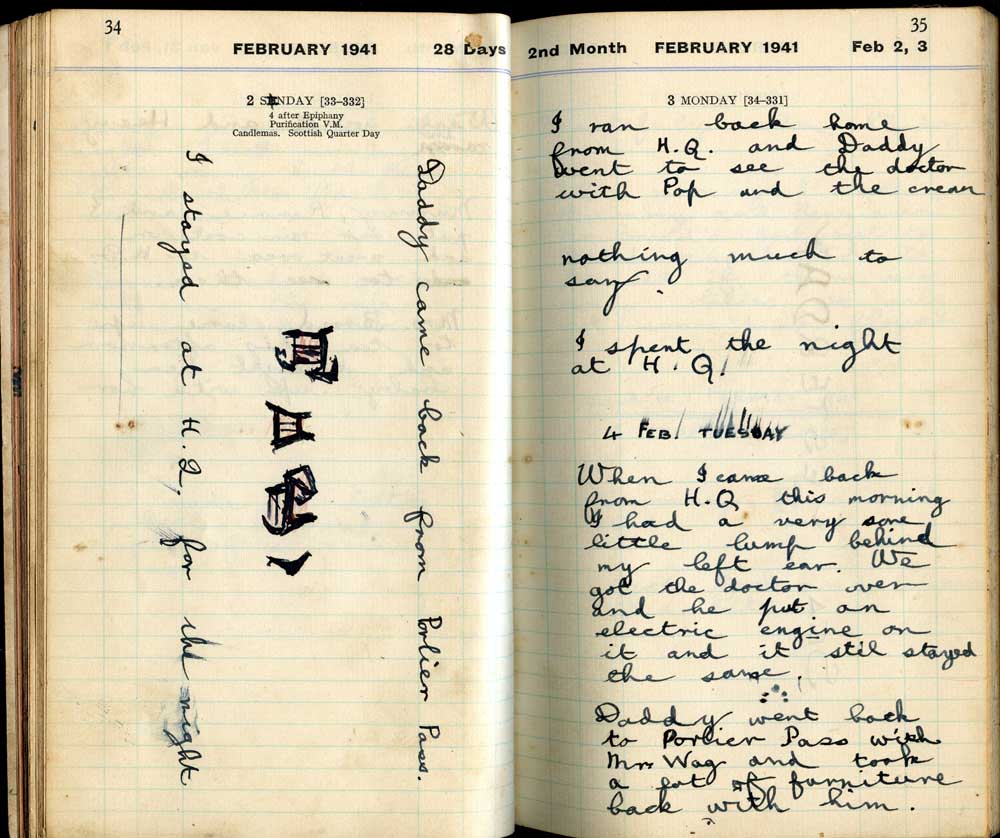 34
FEBRUARY 1941 28 Days
2 SUNDAY [33-332]
4 after Epiphany
Purification V.M.
Candlemas. Scottish Quarter Day
Daddy came back from Porlier Pass.
I stayed at H.Q. for the night
35
2nd Month FEBRUARY 1941 Feb 2, 3
3 MONDAY [34-331]
I ran back home
from H.Q. and Daddy
went to see the doctor
with Pop and the crean
nothing much to
say.
I spent the night
at H.Q.
4 FEB. TUESDAY
When I came back
from H.Q this morning
I had a very sore
little lump behind
my left ear. We
got the doctor over
and he put an
electric engine on
it and it stil stayed
the same.
Daddy went back
to Porlier Pass with
Mr. Wag and took
a lot of furniture
back with him.